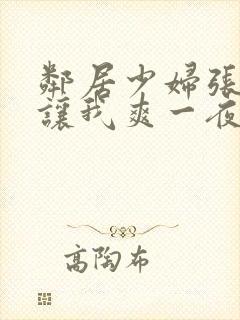 鄰居少婦張
讓我爽一夜
高陶布